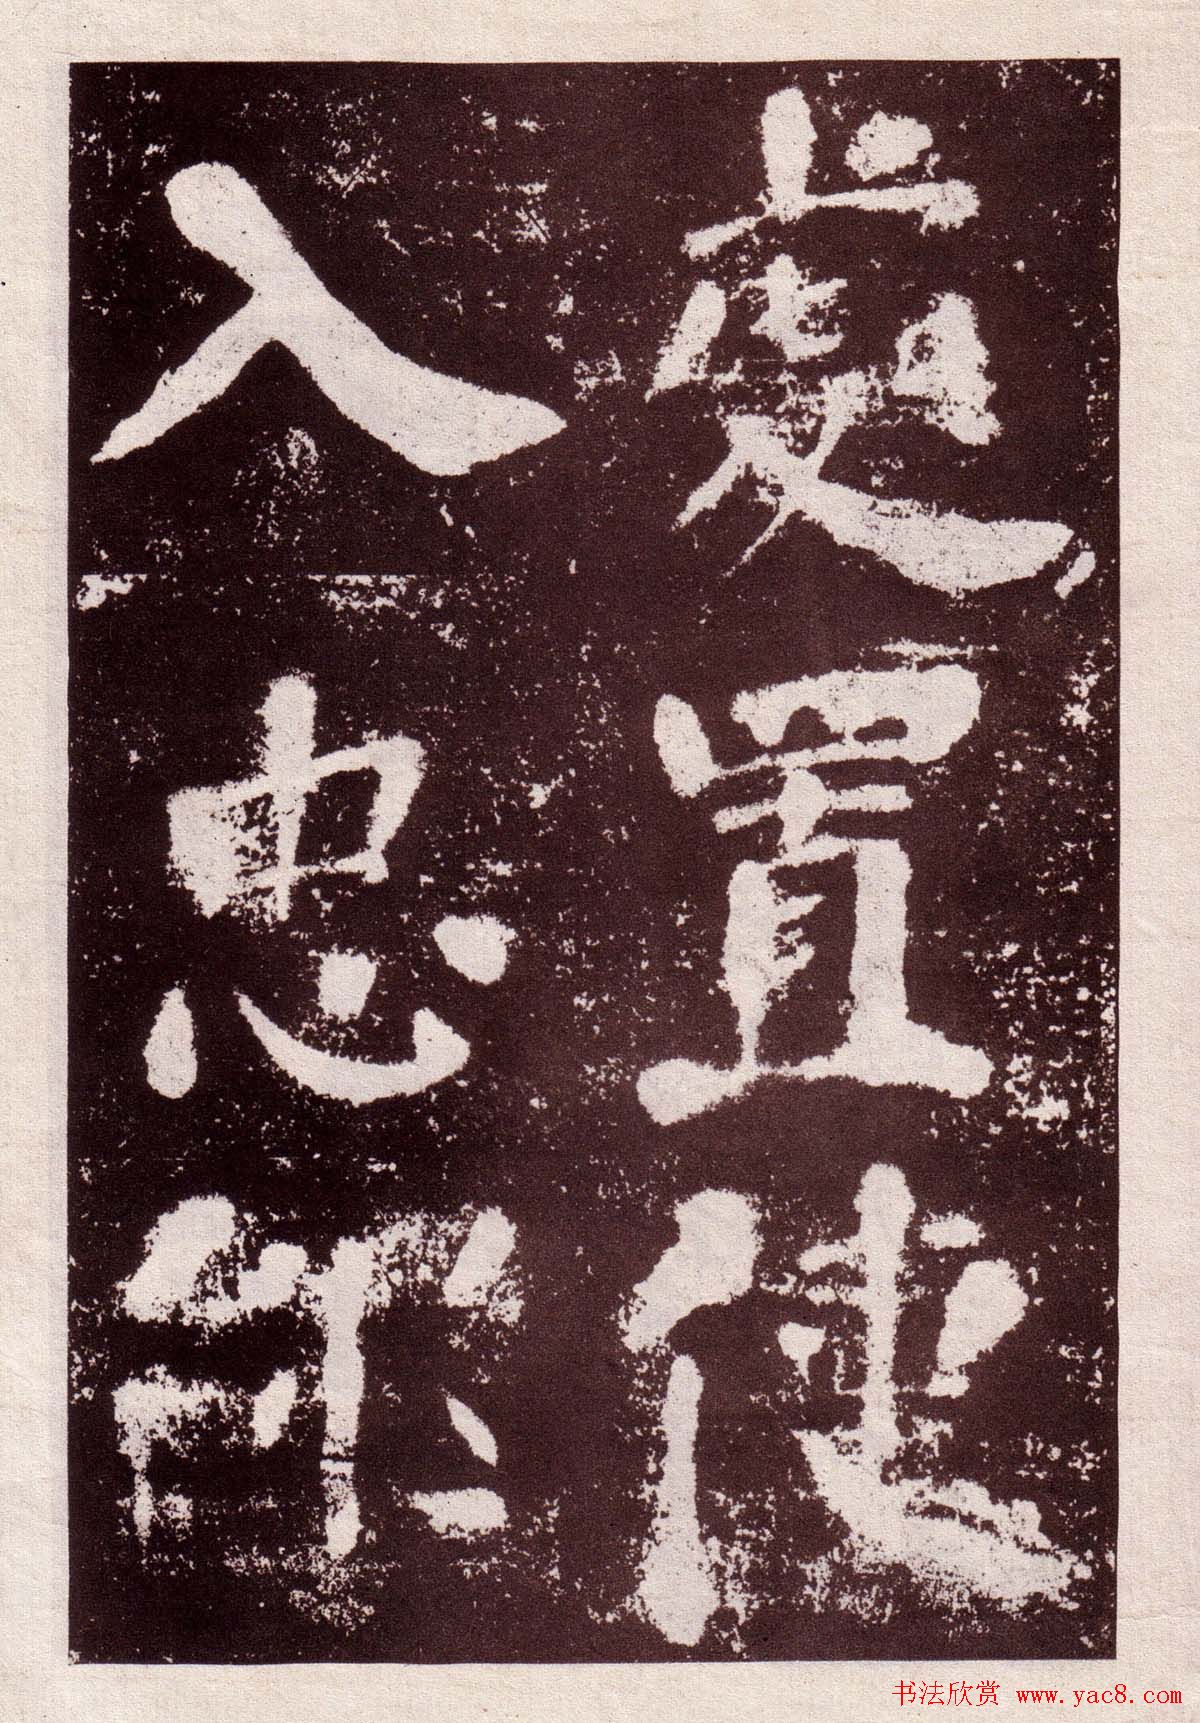 處置使
入忠
书法欣赏 www.yac8.com